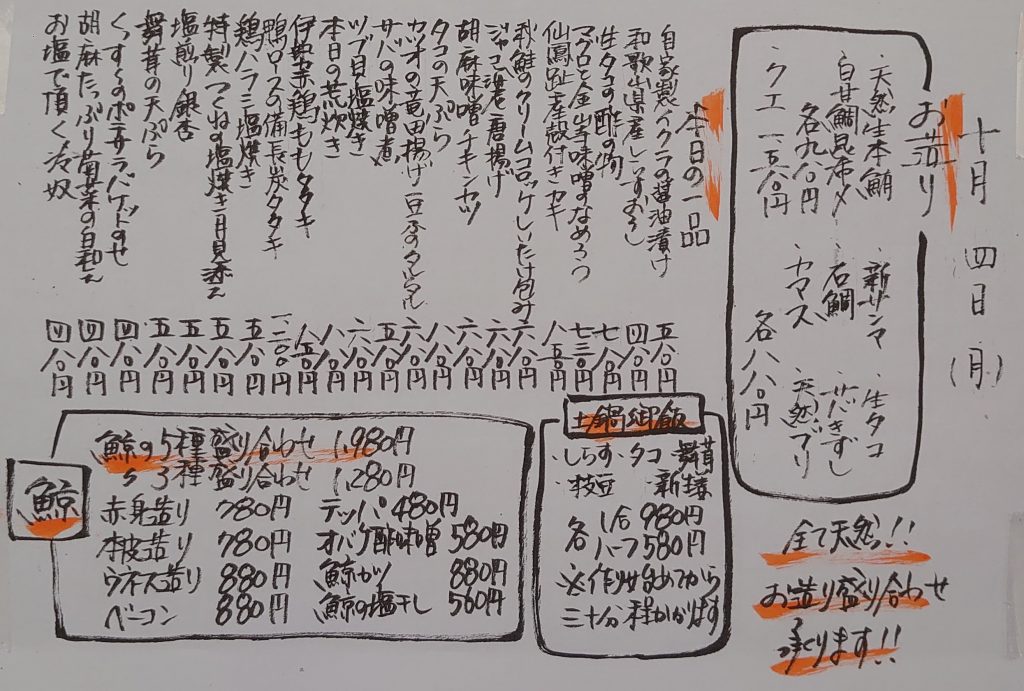 十月 四日（月）
お造り
・天然生本鮪 ・新サンマ ・生タコ
・白甘鯛昆布〆 ・石鯛 ・サバきずし
各九八〇円
・クエ 一一五〇円 ・カマス ・天然ブリ
各八八〇円
全て天然!!
お造り盛り合わせ
承ります!!
本日の一品
自家製イクラの醤油漬け 五八〇円
和歌山県産しらすおろし 四八〇円
生タコの酢の物 七八〇円
マグロと金山寺味噌のなめろう 七三〇円
仙鳳趾産殻付きカキ 八五〇円
秋鮭のクリームコロッケしいたけ包み 六八〇円
ジャコ海老唐揚げ 六八〇円
胡麻味噌チキンカツ 六八〇円
タコの天ぷら 六八〇円
カツオの竜田揚げ 六八〇円
サバの味噌煮 五八〇円
ツブ貝塩焼き 六八〇円
本日の荒炊き 八八〇円
伊勢赤鶏ももタタキ 八五〇円
鴨ロースの備長炭タタキ 一一八〇円
鶏ハラミ塩焼き 五八〇円
特製つくねの塩焼き月見添え 五八〇円
塩煎り銀杏 五八〇円
舞茸の天ぷら 五八〇円
くんすくのポテサラバケットのせ 四八〇円
胡麻たっぷり菊菜の白和え 四八〇円
お塩で頂く冷奴 四八〇円
土鍋御飯
・しらす ・タコ ・舞茸
・枝豆 ・新生姜
各 1合 980円
各 ハーフ 580円
※作り始めてから
三十分程かかります
鯨
鯨の5種盛り合わせ 1,980円
〃 3種盛り合わせ 1,280円
赤身造り 780円 テッパ 480円
本皮造り 780円 オバケ酢味噌 580円
ウネス造り 880円 鯨カツ 880円
ベーコン 880円 鯨の塩干し 560円